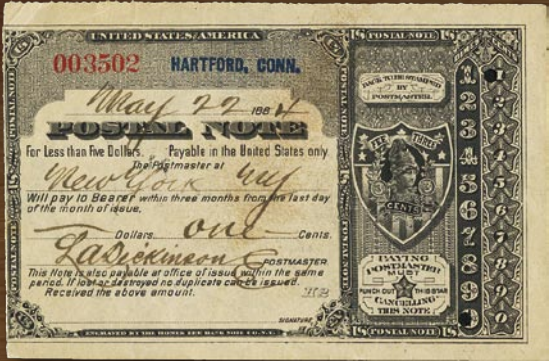 UNITED STATES/AMERICA
003502 HARTFORD, CONN.
May 22 1884
POSTAL NOTE
For Less than Five Dollars. Payable in the United States only
The Postmaster at
New York NY
Will pay to Bearer within three months from the last day
of the month of issue.
Dollars. one Cents.
LADickinson POSTMASTER
This Note is also payable at office of issue within the same
period. If lost or destroyed no duplicate can be issued.
Received the above amount.
SIGNATURE
ENGRAVED BY THE HOMER LEE BANK NOTE CO. N.Y.
POSTAL NOTE
POSTAL NOTE
POSTAL NOTE
POSTAL NOTE
BACK TO BE STAMPED
BY
POSTMASTER.
FEE THREE
3 3
CENTS
PAYING
POSTMASTER
MUST
PUNCH OUT THIS STAR
CANCELLING
THIS NOTE
DIMES CENTS
1 1
2 2
3 3
4 4
5 5
6 6
7 7
8 8
9 9
0 0